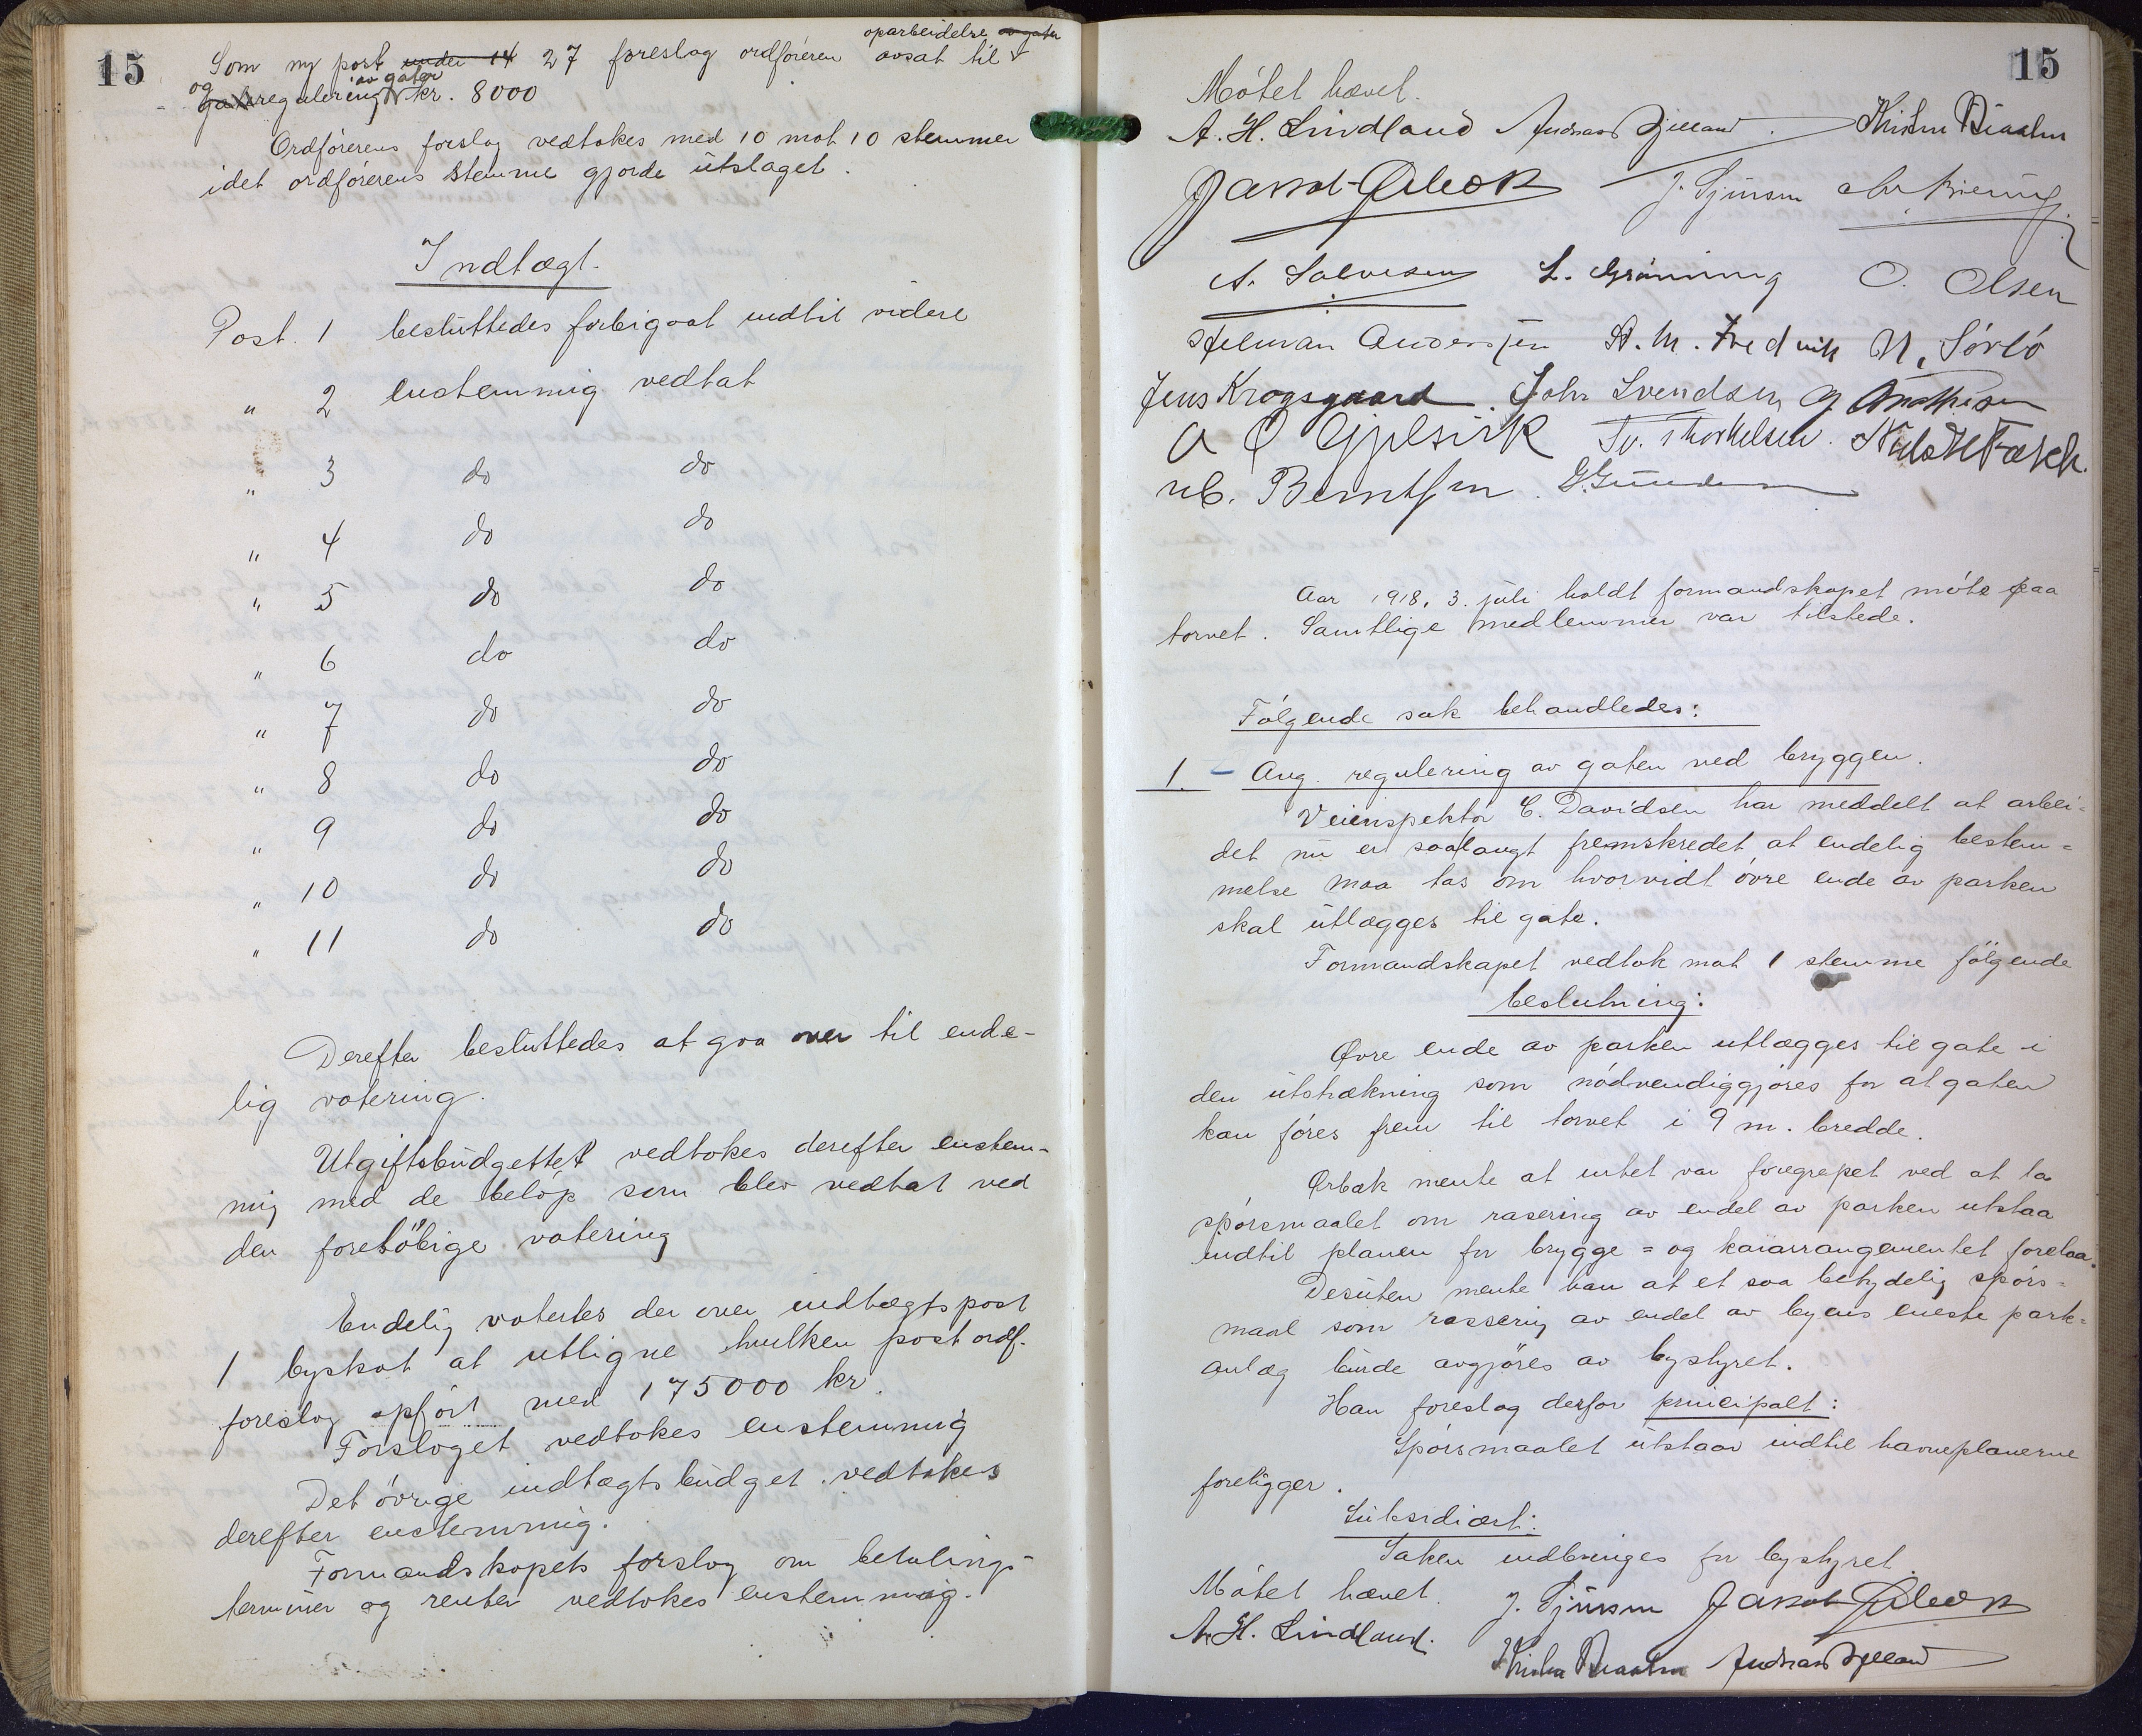 15
oparbeidelse av gater
Som ny post under 14 27 foreslog ordföreren avsat til
og av gater
gateregulering kr. 8000
Ordförerens forslag vedtokes med 10 mot 10 stemmer
idet ordförerens stemme gjorde utslaget.
Indtægt.
Post. 1 besluttedes forbigaat indtil videre
" 2 enstemmig vedtat
" 3 do do
" 4 do do
" 5 do do
" 6 do do
" 7 do do
" 8 do do
" 9 do do
" 10 do do
" 11 do do
Derefter besluttedes at gaa over til ende-
lig votering.
Utgiftsbudgettet vedtokes derefter enstem-
mig med de belöp som blev vedtat ved
den forelöbige votering
Endelig votertes der over indtægtspost
1 byskat at utligne hvilken post ordf.
foreslog opfört med 175000 kr.
Forslaget vedtokes enstemmig
Det övrige indtægtsbudget vedtokes
derefter enstemmig.
Formandskapets forslag om betalings-
terminer og renter vedtokes enstemmig.
15
Mötet hævet.
A. H. Lindland Andreas Djuland
J. Sjursen
A. Salvesen L. Gröning O. Olsen
Hilman Anderssen St. M. Fredvik N. Sörlö
Jens Krogsgaard. John Svendsen G. Mathisen
A O Gjelsvik Tv. Thorkelsen.
Berntsen. G. Gundersen
Aar 1918, 3. juli holdt formandskapet möte paa
torvet. Samtlige medlemmer var tilstede.
Fölgende sak behandledes:
1. Ang. regulering av gaten ved bryggen.
Veiinspektör C. Davidsen har meddelt at arbei-
det nu er saalangt fremskredet at endelig bestem=
melse maa tas om hvorvidt övre ende av parken
skal utlægges til gate.
Formandskapet vedtok mot 1 stemme fölgende
beslutning:
Øvre ende av parken utlægges til gate i
den utstrækning som nödvendiggjöres for at gaten
kan föres frem til torvet i 9 m. bredde.
Ørbæk mente at intet var foregrepet ved at la
spörsmaalet om rasering av endel av parken utstaa
indtil planen for brygge= og kaiarrangementet forelaa.
Desuten mente han at et saa betydelig spörs=
maal som rassering av endel av byens eneste park=
anlæg burde avgjöres av bystyret.
Han foreslog derfor principalt:
Spörsmaalet utstaar indtil havneplanerne
foreligger.
Subsidiært:
Saken indbringes for bystyret
Mötet hævet. J. Sjursen
A. H. Lindland.